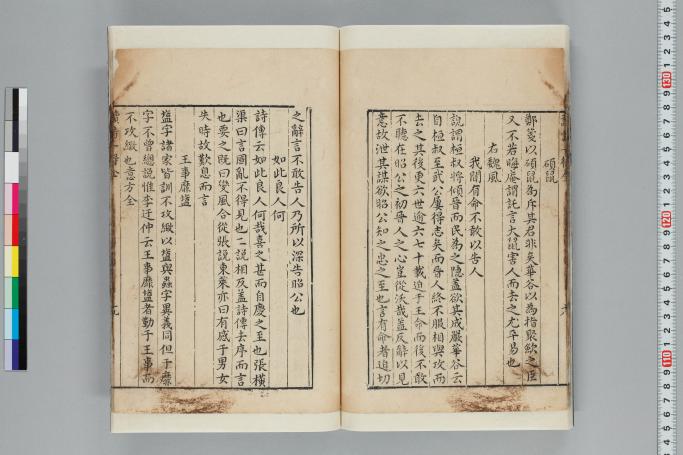 碩鼠
鄭箋以碩鼠為斥其君非矣華谷以為指聚斂之臣
又不若晦庵謂託言大鼠害人而去之尤平易也
右魏風
我聞有命不敢以告人
說謂桓叔將傾晉而民為之隱蓋欲其成嚴華谷云
自桓叔至武公屢得志矣而晉人終不服相與攻而
去之其後更六世逾六七十載迫于王命而後不敢
不聽在昭公之初晉人之心豈從沃哉蓋反辭以見
意故泄其謀欲昭公知之忠之至也言有命者迫切
之辭言不敢告人乃所以深告昭公也
如此良人何
詩傳云如此良人何哉喜之甚而自慶之至也張橫
渠曰言國亂不得見也二說相反蓋詩傳去序而言
也要之既曰變風合從張說東萊亦曰有感于男女
失時故歎息而言
王事靡盬
盬字諸家皆訓不攻緻以盬與蠱字異義同但于靡
字不曾總說惟李迂仲云王事靡盬者勤于王事而
不攻緻也意方全
130
120
110